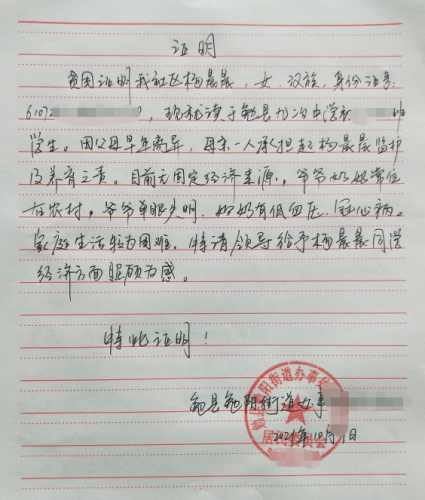 证明
贫困证明我社区杨晨晨，女，汉族，身份证号：
6107 现就读于勉县九冶中学初 班
学生。因父母早年离异，母亲一人承担起杨晨晨监护
及养育之责。目前无固定经济来源，爷爷奶奶常住
在农村，爷爷单眼失明，奶奶有低血压、冠心病。
家庭生活较为困难，特请领导给予杨晨晨同学
经济方面照顾为感。
特此证明！
勉县勉阳街道办事
2021年10月1日
勉阳街道办事处
居民委员会